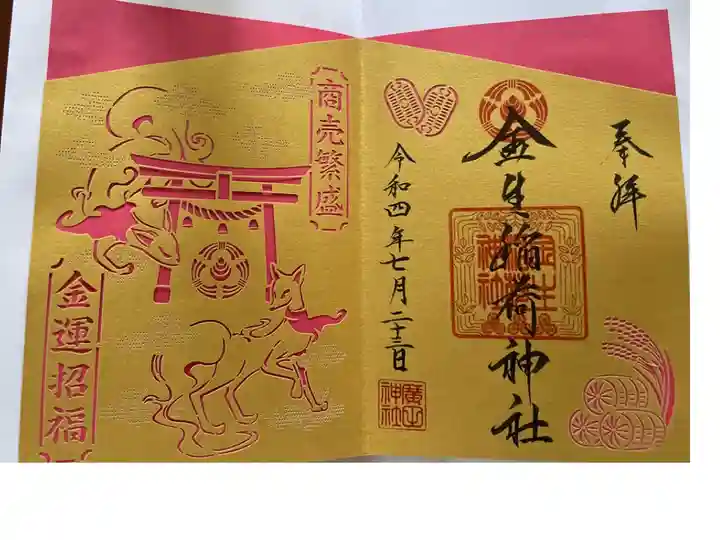 奉拝
金生稲荷神社
令和四年七月二十三日
廣山神社
商売繁盛
金運招福
金生稲荷神社